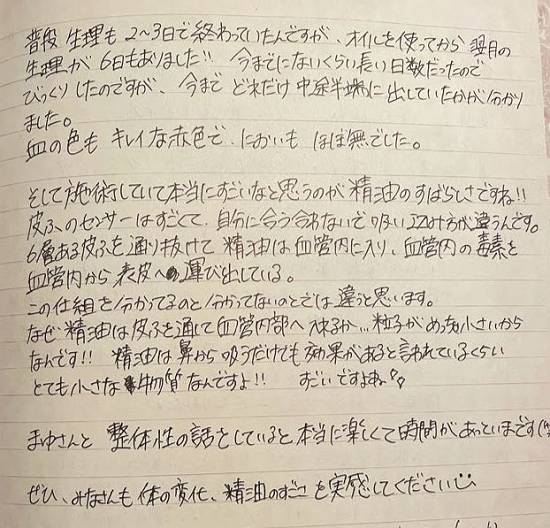 普段 生理も 2〜3日で終わっていたんですが、オイルを使ってから 翌月の
生理が 6日もありました!! 今までにないくらい長い日数だったので
びっくりしたのですが、今まで どれだけ 中途半端に出していたかが分かり
ました。
血の色も キレイな赤色で、においも ほぼ無でした。
そして施術していて本当にすごいなと思うのが 精油のすばらしさですね!!
皮ふのセンサーはすごくて、自分に合う合わないで吸い込み方が違うんです。
6層ある皮ふを通り抜けて 精油は血管内に入り、血管内の毒素を
血管内から 表皮への運び出している。
この仕組を分かってるのと分かってないのとでは 違うと思います。
なぜ 精油は皮ふを通して血管内部へ 入れるか…粒子がめっちゃ小さいから
なんです!! 精油は鼻から 吸うだけでも 効果があると言われているくらい
とても小さな 物質なんですよ!! すごいですよね
まゆさんと 整体性の話をしていると本当に楽しくて時間があっといまです
ぜひ、みなさんも 体の変化、精油のすごさ を実感してください